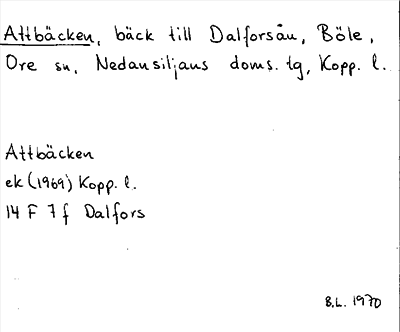 Attbäcken, bäck till Dalforsån, Böle,
Ore sn, Nedansiljans doms. tg, Kopp. l.
Attbäcken
ek (1969) Kopp. l.
14 F 7 f Dalfors
B.L. 1970